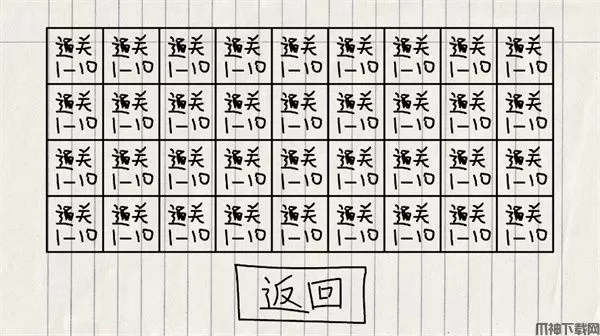 通关 通关 通关 通关 通关 通关 通关 通关 通关
1-10 1-10 1-10 1-10 1-10 1-10 1-10 1-10 1-10
通关 通关 通关 通关 通关 通关 通关 通关 通关
1-10 1-10 1-10 1-10 1-10 1-10 1-10 1-10 1-10
通关 通关 通关 通关 通关 通关 通关 通关 通关
1-10 1-10 1-10 1-10 1-10 1-10 1-10 1-10 1-10
通关 通关 通关 通关 通关 通关 通关 通关 通关
1-10 1-10 1-10 1-10 1-10 1-10 1-10 1-10 1-10
返回
爪神下载网